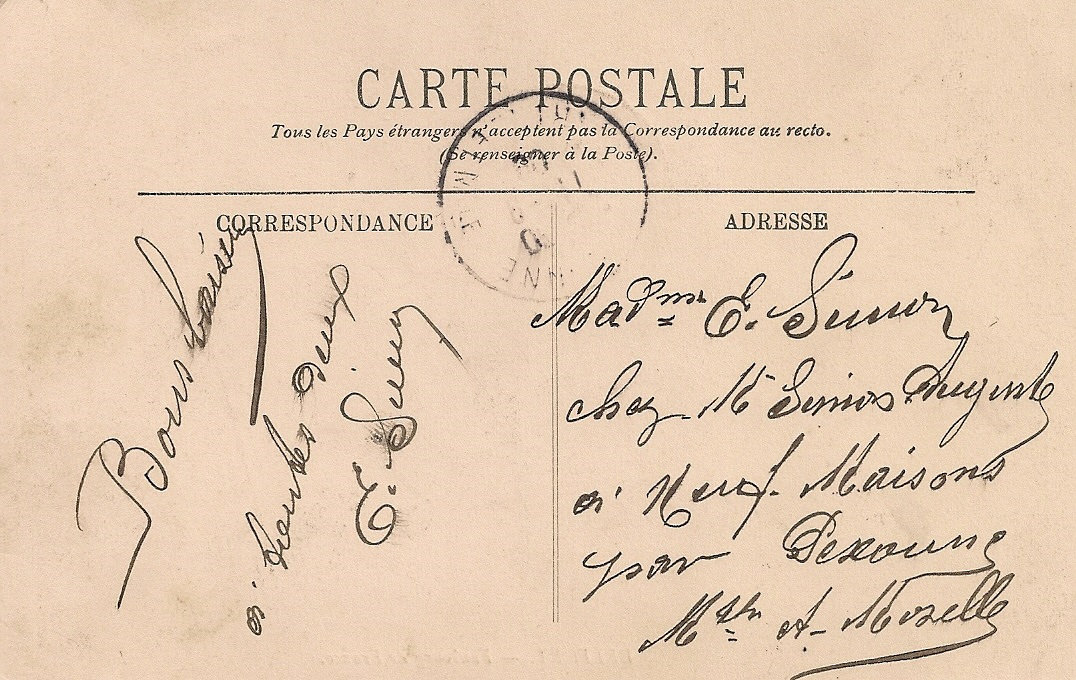 CARTE POSTALE
Tous les Pays étrangers n'acceptent pas la Correspondance au recto.
(Se renseigner à la Poste).
CORRESPONDANCE
ADRESSE
Bons baisers
à toutes deux
E. Simon
Madme E. Simon
chez M Simon
à Neuf. Maisons
par Pexonne
Mthe A- Moselle